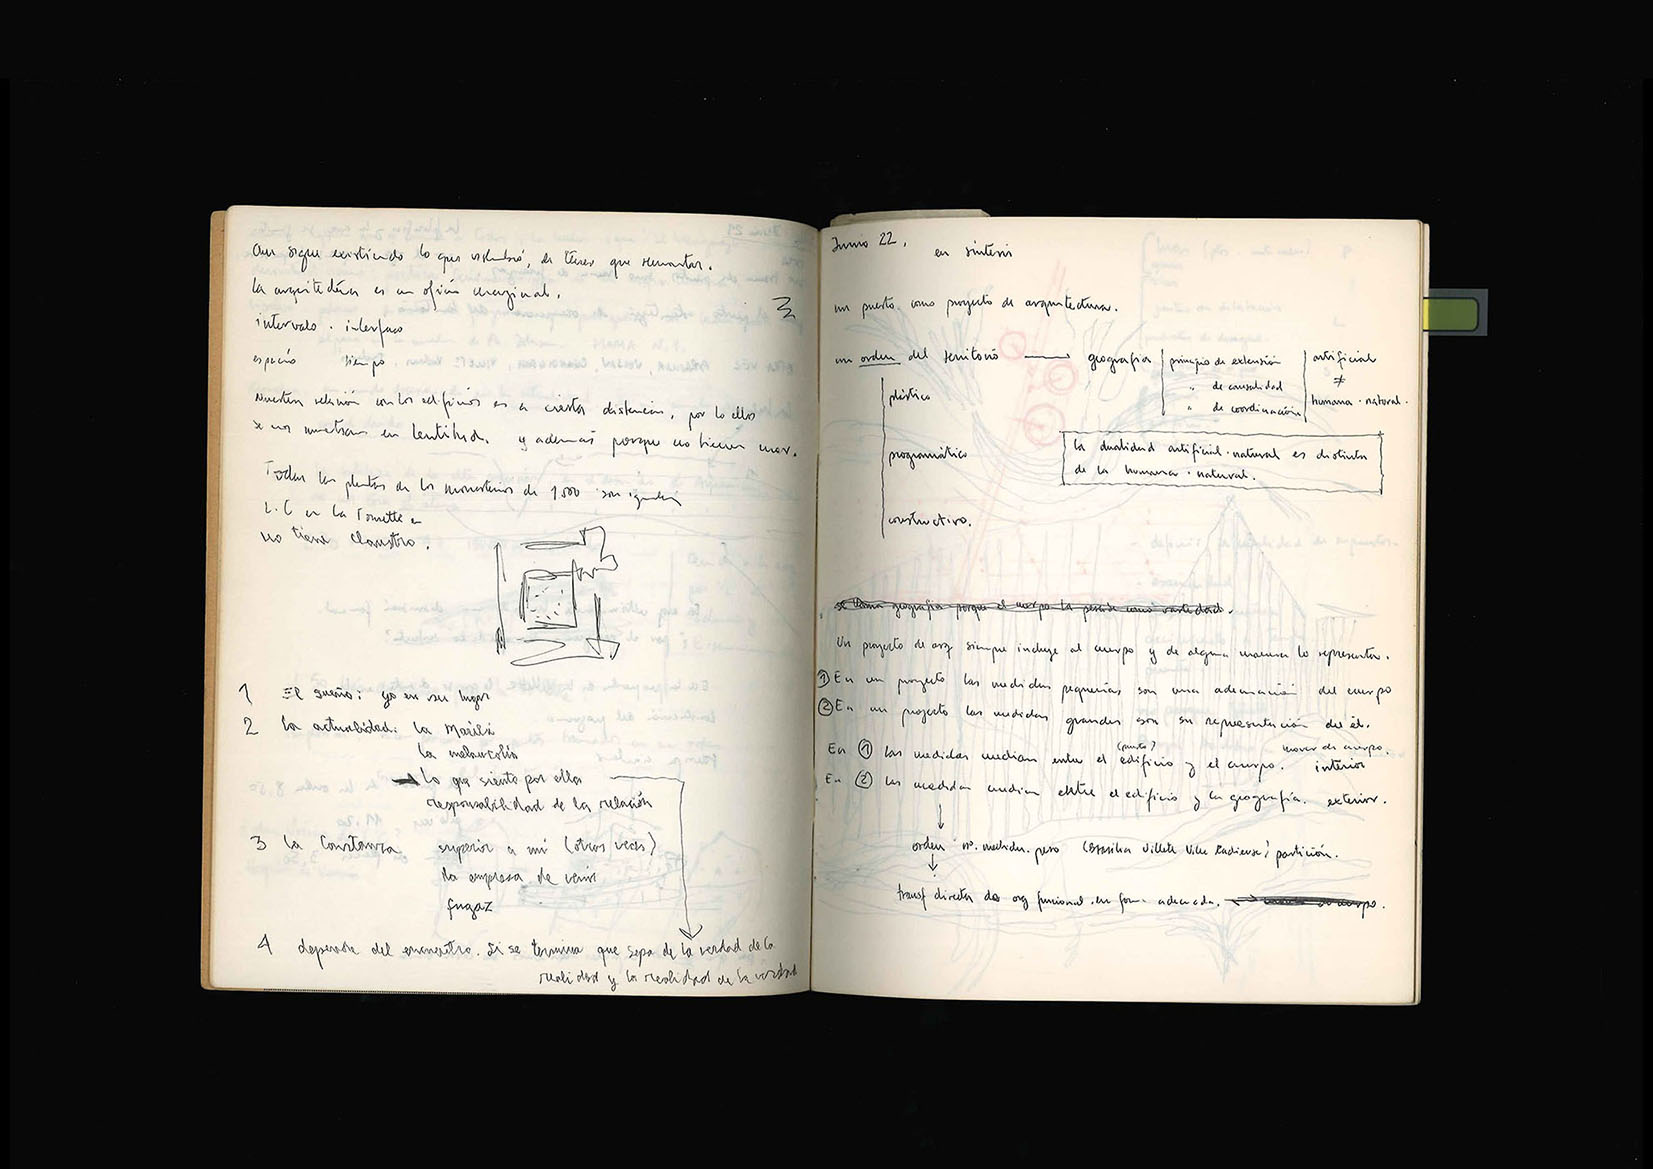 Aun sigue existiendo lo que vislumbró, de tener que remontar.
La arquitectura es un oficio marginal.
intervalo . interfase
espacio tiempo
Nuestra relación con los edificios es a cierta distancia, por lo ellos
se nos muestran en lentitud. y además porque no tienen
Todas las plantas de los monasterios de 1000 son iguales
L.C en la Tourette
no tiene claustro.
1 El sueño: yo en su lugar
2 La actualidad: La
la melancolía
lo que siento por ella
responsabilidad de la relación
3 La Constanza superior a mí (otras veces)
la empresa de venir
fugaz
4 depende del encuentro. Si se termina que sepa de la verdad de la
realidad y la realidad de la verdad
Junio 22. en síntesis
un puerto como proyecto de arquitectura.
un orden del territorio geografía principio de extensión artificial
" de causalidad ≠
" de coordinación humana . natural.
plástico
programático
constructivo.
la dualidad artificial . natural es distinta
de la humana . natural.
se llama geografía porque el cuerpo la percibe como
Un proyecto de arq siempre incluye al cuerpo y de alguna manera lo representa.
① En un proyecto las medidas pequeñas son una adecuación del cuerpo
② En un proyecto las medidas grandes son su representación de él.
En ① las medidas median entre el edificio y el cuerpo. interior
En ② las medidas median entre el edificio y la geografía. exterior.
orden nº. medida. peso (Brasilia Villete Ville Radieuse) partición.
transf directa de org funcional en forma adecuada.